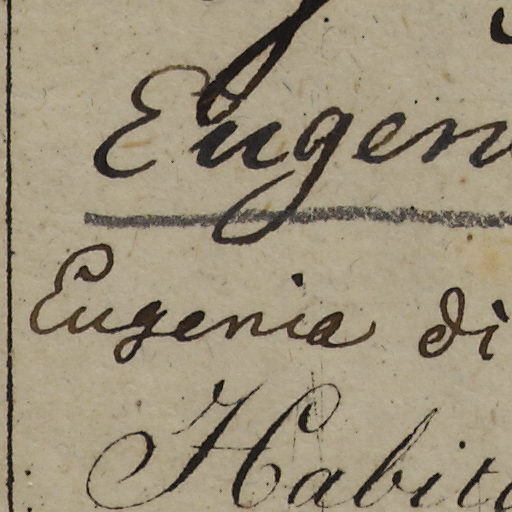 Eugen
Eugenia di
Habita